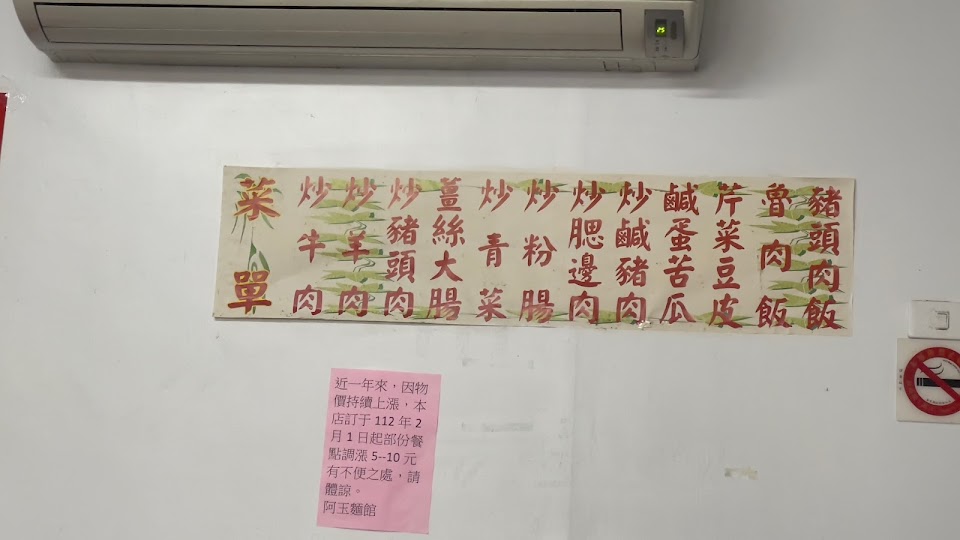 25
菜單
炒牛肉
炒羊肉
炒豬頭肉
薑絲大腸
炒青菜
炒粉腸
炒腮邊肉
炒鹹豬肉
鹹蛋苦瓜
芹菜豆皮
魯肉飯
豬頭肉飯
近一年來，因物
價持續上漲，本
店訂于 112 年 2
月 1 日起部份餐
點調漲 5--10 元
有不便之處，請
體諒。
阿玉麵館